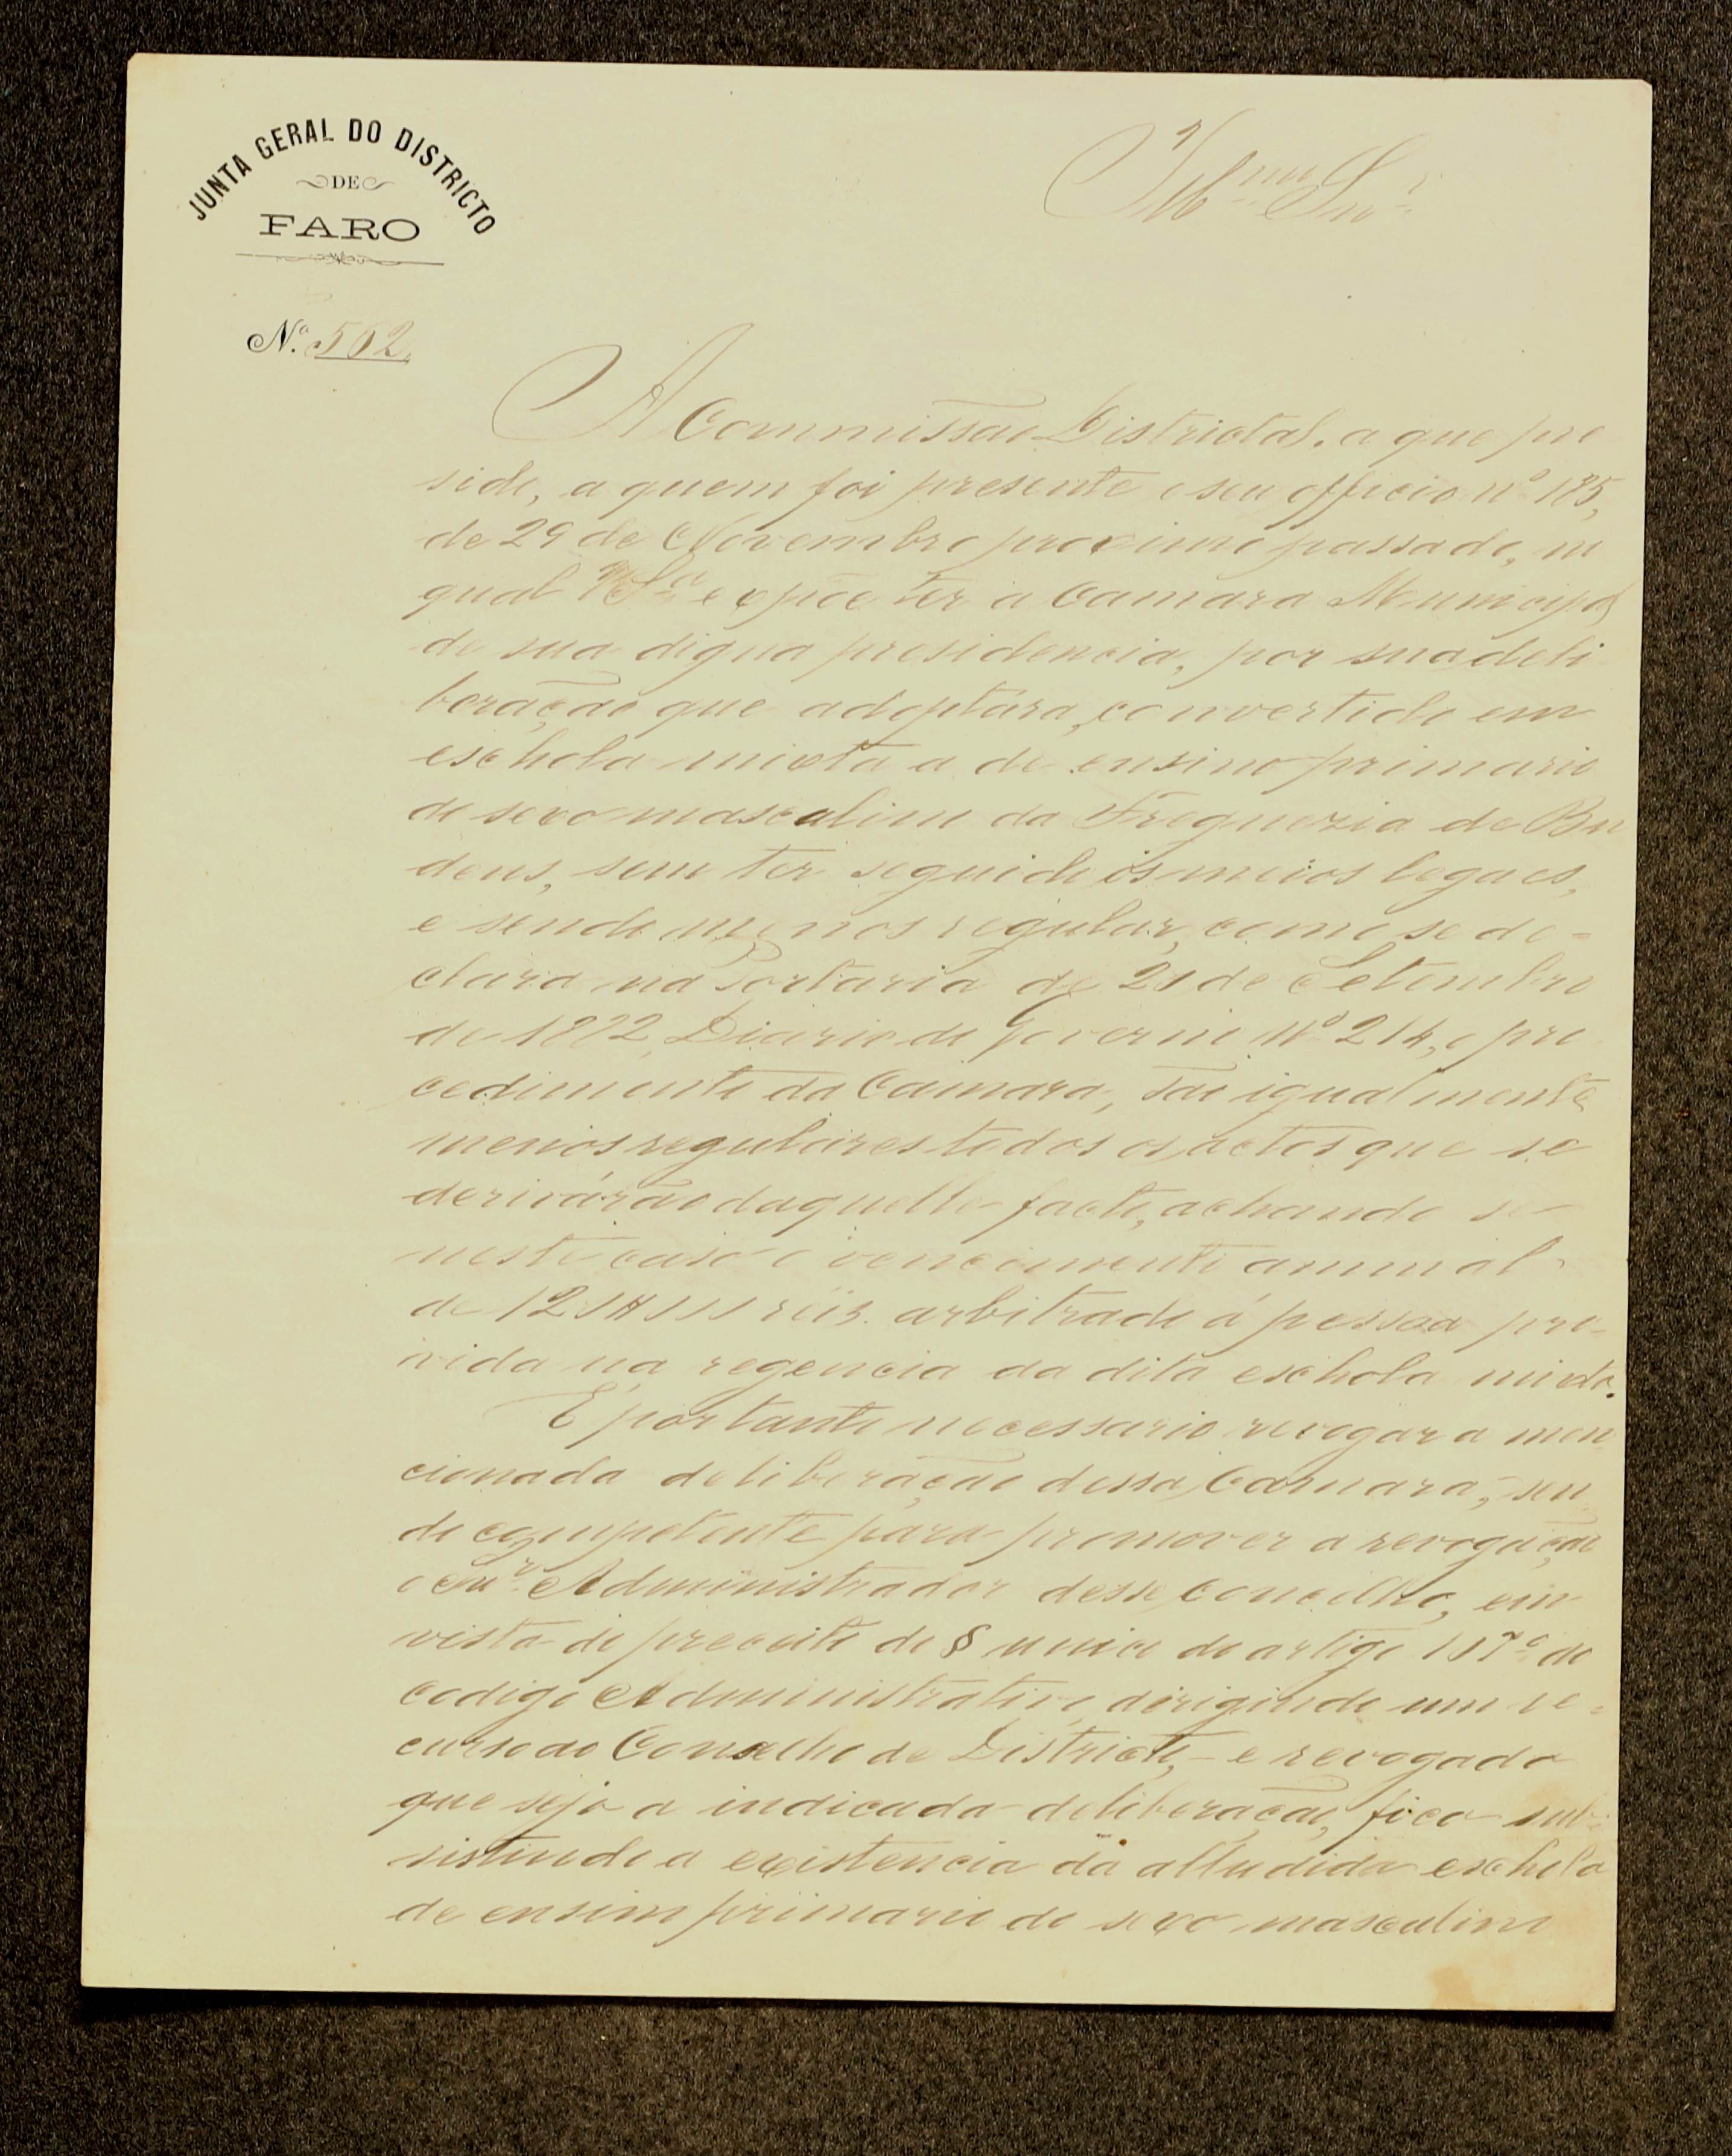 JUNTA GERAL DO DISTRICTO
DE
FARO
Illmo Snr.
No. 562
A Commissão Districtal, a que pre
side, a quem foi presente o seu officio nº 185,
de 29 de Novembro proximo passado, no
qual V. Sa. expõe ter a Camara Municipal
de sua digna presidencia, por sua deli
beração que adoptára, convertido em
eschola mixta a de ensino primario
do sexo masculino da Freguezia de Bu
dens, sem ter seguido os meios legaes,
e sendo menos regular, como se de=
clara na Portaria de 21 de Setembro
de 1882, Diario do Governo Nº 214, o pro
cedimento da Camara, são igualmente
menos regulares todos os actos que se
derivárão daquelle facto, achando se
neste caso o vencimento annual
de réis arbitrado á pessoa pro-
vida na regencia da dita eschola mixta.
É portanto necessario revogar a men
cionada deliberação dessa Camara, sen
do competente para promover a revogação
o Snr. Administrador desse concelho, em
vista do preceito do § unico do artigo do
codigo Administrativo, dirigindo um re=
curso ao Conselho de Districto, e revogada
que seja a indicada deliberação, fica sub
sistindo a existencia da alludida eschola
de ensino primario do sexo masculino